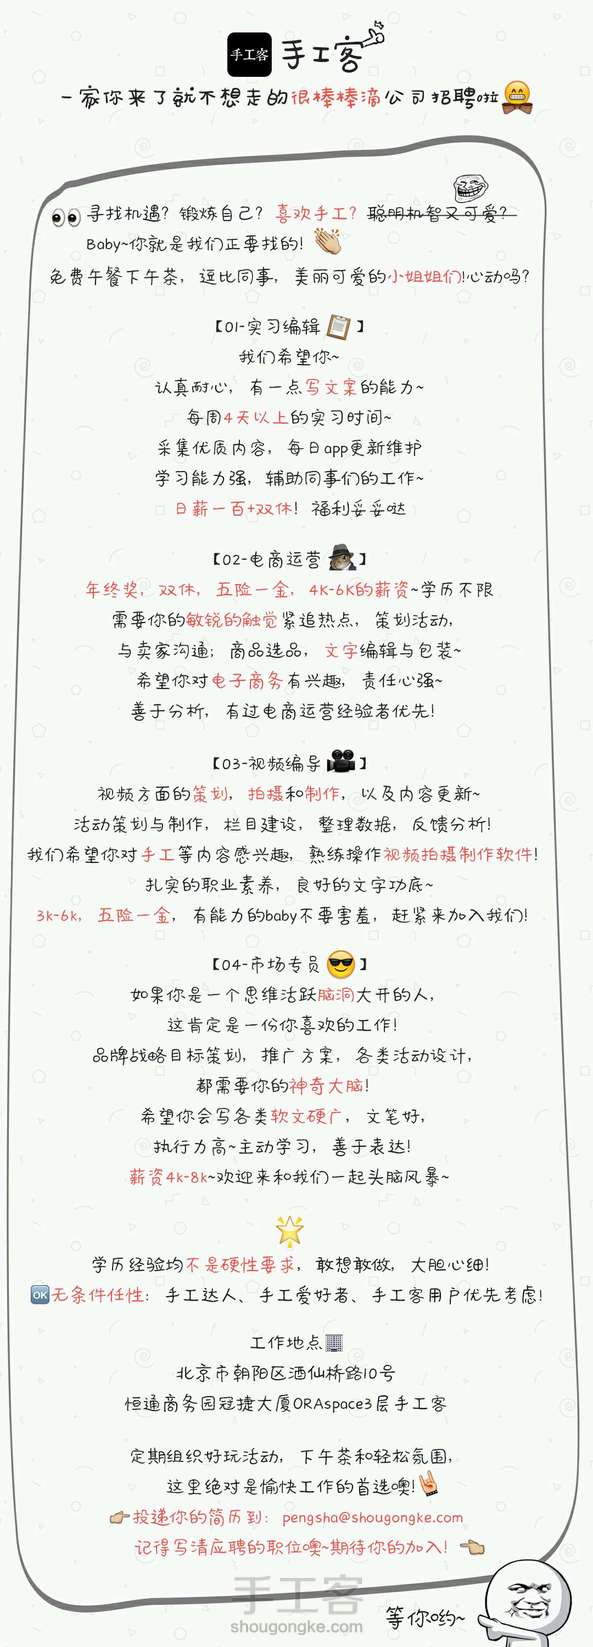 手工客 手工客
一家你来了就不想走的很棒棒滴公司招聘啦
寻找机遇?锻炼自己?喜欢手工?聪明机智又可爱?
Baby~你就是我们正要找的!
免费午餐下午茶,逗比同事,美丽可爱的小姐姐们!心动吗?
【01-实习编辑】
我们希望你~
认真耐心,有一点写文案的能力~
每周4天以上的实习时间~
采集优质内容,每日app更新维护
学习能力强,辅助同事们的工作~
日薪一百+双休!福利妥妥哒
【02-电商运营】
年终奖,双休,五险一金,4K-6K的薪资~学历不限
需要你的敏锐的触觉紧追热点,策划活动,
与卖家沟通;商品选品,文字编辑与包装~
希望你对电子商务有兴趣,责任心强~
善于分析,有过电商运营经验者优先!
【03-视频编导】
视频方面的策划,拍摄和制作,以及内容更新~
活动策划与制作,栏目建设,整理数据,反馈分析!
我们希望你对手工等内容感兴趣,熟练操作视频拍摄制作软件!
扎实的职业素养,良好的文字功底~
3k-6k,五险一金,有能力的baby不要害羞,赶紧来加入我们!
【04-市场专员】
如果你是一个思维活跃脑洞大开的人,
这肯定是一份你喜欢的工作!
品牌战略目标策划,推广方案,各类活动设计,
都需要你的神奇大脑!
希望你会写各类软文硬广,文笔好,
执行力高~主动学习,善于表达!
薪资4k-8k~欢迎来和我们一起头脑风暴~
学历经验均不是硬性要求,敢想敢做,大胆心细!
OK无条件任性:手工达人、手工爱好者、手工客用户优先考虑!
工作地点
北京市朝阳区酒仙桥路10号
恒通商务园冠捷大厦ORAspace3层手工客
定期组织好玩活动,下午茶和轻松氛围,
这里绝对是愉快工作的首选噢!
投递你的简历到:pengsha@shougongke.com
记得写清应聘的职位噢~期待你的加入!
手工客
shougongke.com
等你哟~